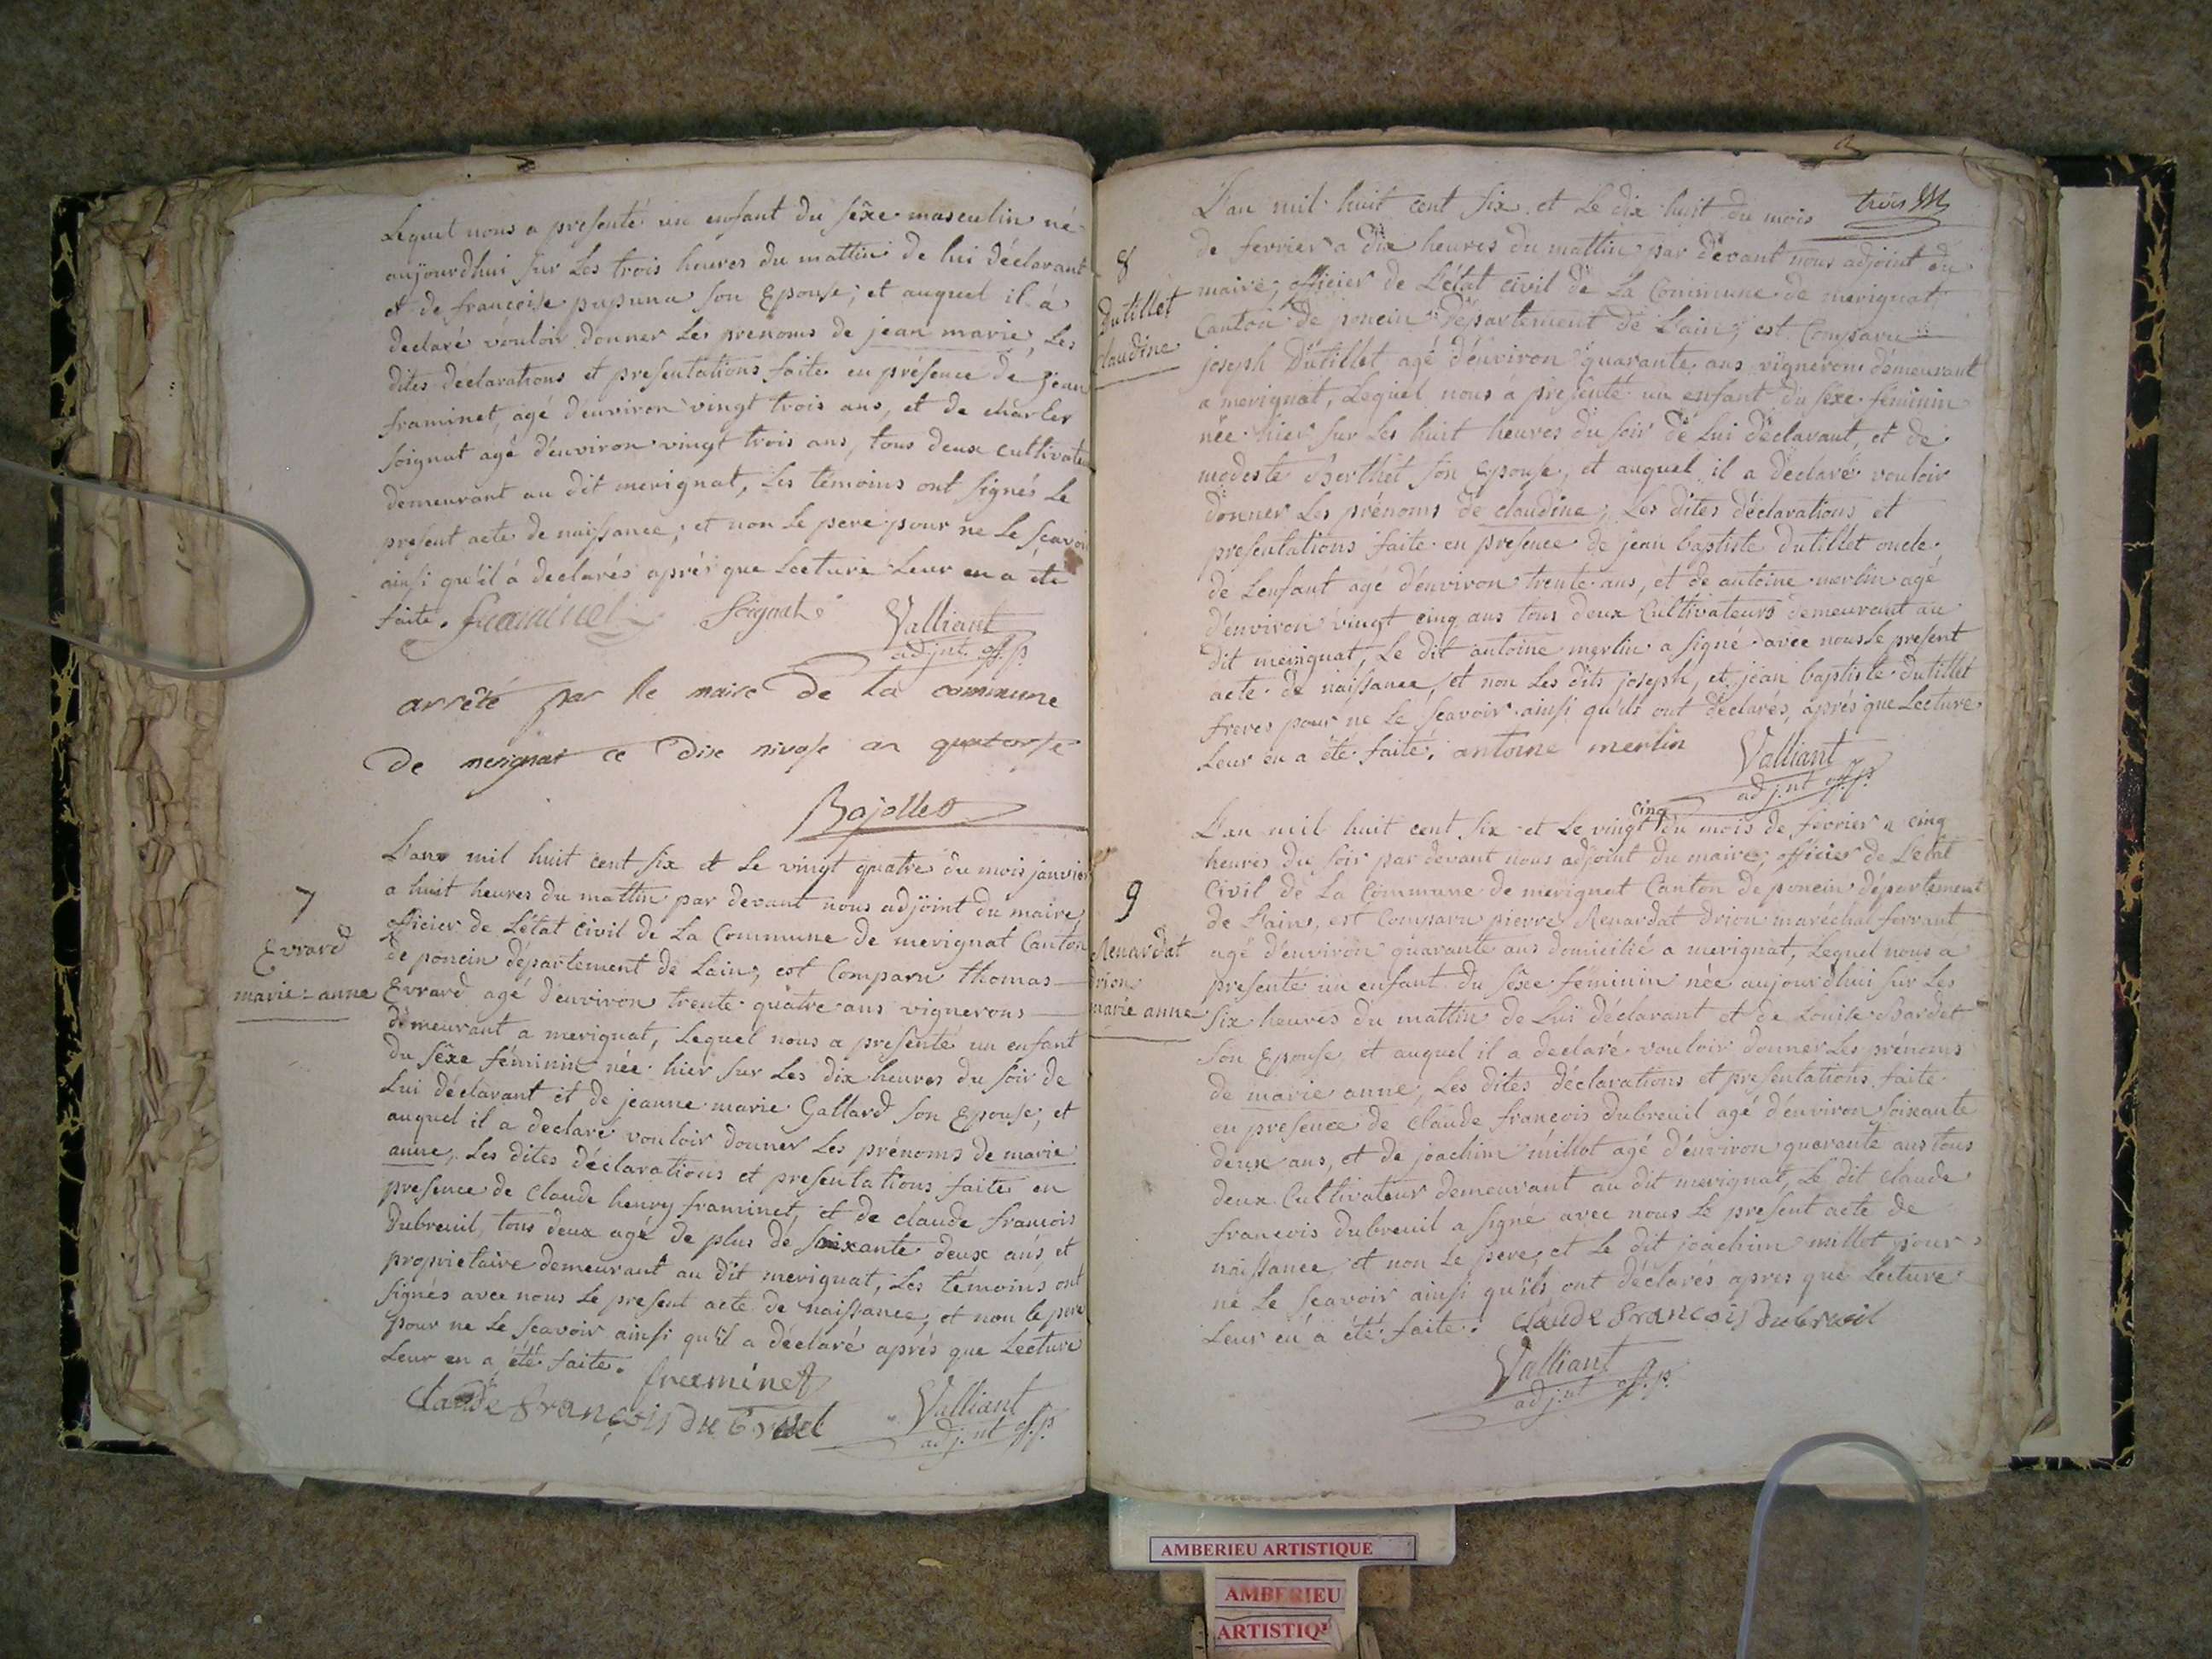 Lequel nous a presenté un enfant du sêxe masculin né
aujourdhui sur Les trois heures du mattin de lui déclarant
et de francoise pupuna son Epouse; et auquel il à
declaré vouloir donner Les prenoms de jean marie, Les
dites déclarations et presentations faite en présence de jean
framinet, agé d'environ vingt trois ans, et de charles
soignat agé d'environ vingt trois ans, tous deux cultivate
demeurant au dit merignat, Les témoins ont signés Le
present acte de naissance; et non Le pere pour ne Le scavoi
ainsi qu'il à declarés aprés que Lecture Leur en a été
faite. framinet Soignat Valliant
adjnt. off. p.
arrêté par le maire de la commune
de merignat ce dix nivose an quatorse
Bajollet
7
Evrard
marie-anne
L'an mil huit cent six et Le vingt quatre du mois janvier
a huit heures du mattin par devant nous adjoint du maire,
officier de L'état civil de La Commune de merignat Canton
de poncin département de Lain, est Comparu thomas
Evrard agé d'environ trente quatre ans vignerons
demeurant a merignat, Lequel nous a presenté un enfant
du sêxe féminin née hier sur Les dix heures du soir de
Lui déclarant et de jeanne marie Gallard son Epouse, et
auquel il a declaré vouloir donner Les prénoms de marie
anne, Les dites déclarations et presentations faite en
presence de Claude henry framinet, et de claude francois
Dubreuil, tous deux agé de plus de soixante deux ans, et
proprietaire demeurant au dit merignat, Les témoins ont
signés avec nous Le present acte de naissance, et non le pere
pour ne Le scavoir ainsi qu'il a déclaré aprés que Lecture
Leur en a été faite. framinet
Claude François Du breuil Valliant
adj.nt off.p.
trois
8
Dutillet
claudine
L'an mil huit cent six et Le dix huit du mois
de fevrier a dix heures du mattin par devant nous adjoint du
maire, officier de L'état civil de La Commune de merignat
Canton de poncin Département de L'ain, est Comparu
joseph Dutillet agé d'environ quarante ans vigneron demeurant
a merignat, Lequel nous à presenté un enfant du sexe féminin
née hier sur Les huit heures du soir de Lui déclarant, et de
modeste Berthet son Epouse, et auquel il a déclaré vouloir
donner Les prénoms de claudine, Les dites déclarations et
presentations faite en presence de jean baptiste Dutillet oncle
de Lenfant agé d'environ trente ans, et de antoine merlin agé
d'environ vingt cinq ans tous deux Cultivateurs demeurant au
dit merignat, Le dit antoine merlin a signé avec nous Le present
acte de naissance, et non Les dits joseph, et jean baptiste Dutillet
freres pour ne Le scavoir ainsi qu'ils ont déclarés, aprés que Lecture
Leur en a été faite. antoine merlin Valliant
adj.nt off.p.
9
Renardat
Drion
marie anne
L'an mil huit cent six et Le vingt cinq du mois de fevrier a cinq
heures du soir par devant nous adjoint du maire, officier de L'etat
Civil de La Commune de merignat Canton de poncin département
de L'ain, est Comparu pierre Renardat Drion marechal ferrant
agé d'environ quarante ans domicilié a merignat, Lequel nous a
presenté un enfant du sêxe féminin née aujourdhui sur Les
six heures du mattin de Lui déclarant et de Louise Bardet
son Epouse, et auquel il a declaré vouloir donner Les prénoms
de marie anne, Les dites déclarations et presentations faite
en presence de Claude francois Dubreuil agé d'environ soixante
deux ans, et de joachim millot agé d'environ quarante ans tous
deux Cultivateur demeurant au dit merignat, Le dit claude
francois Dubreuil a signé avec nous Le present acte de
naissance, et non Le pere, et Le dit joachim millet pour
ne Le scavoir ainsi qu'ils ont déclarés apres que Lecture
Leur en a été faite. Claude François du breuil
Valliant
adj.nt off.p.
AMBERIEU ARTISTIQUE
AMBERIEU
ARTISTIQ